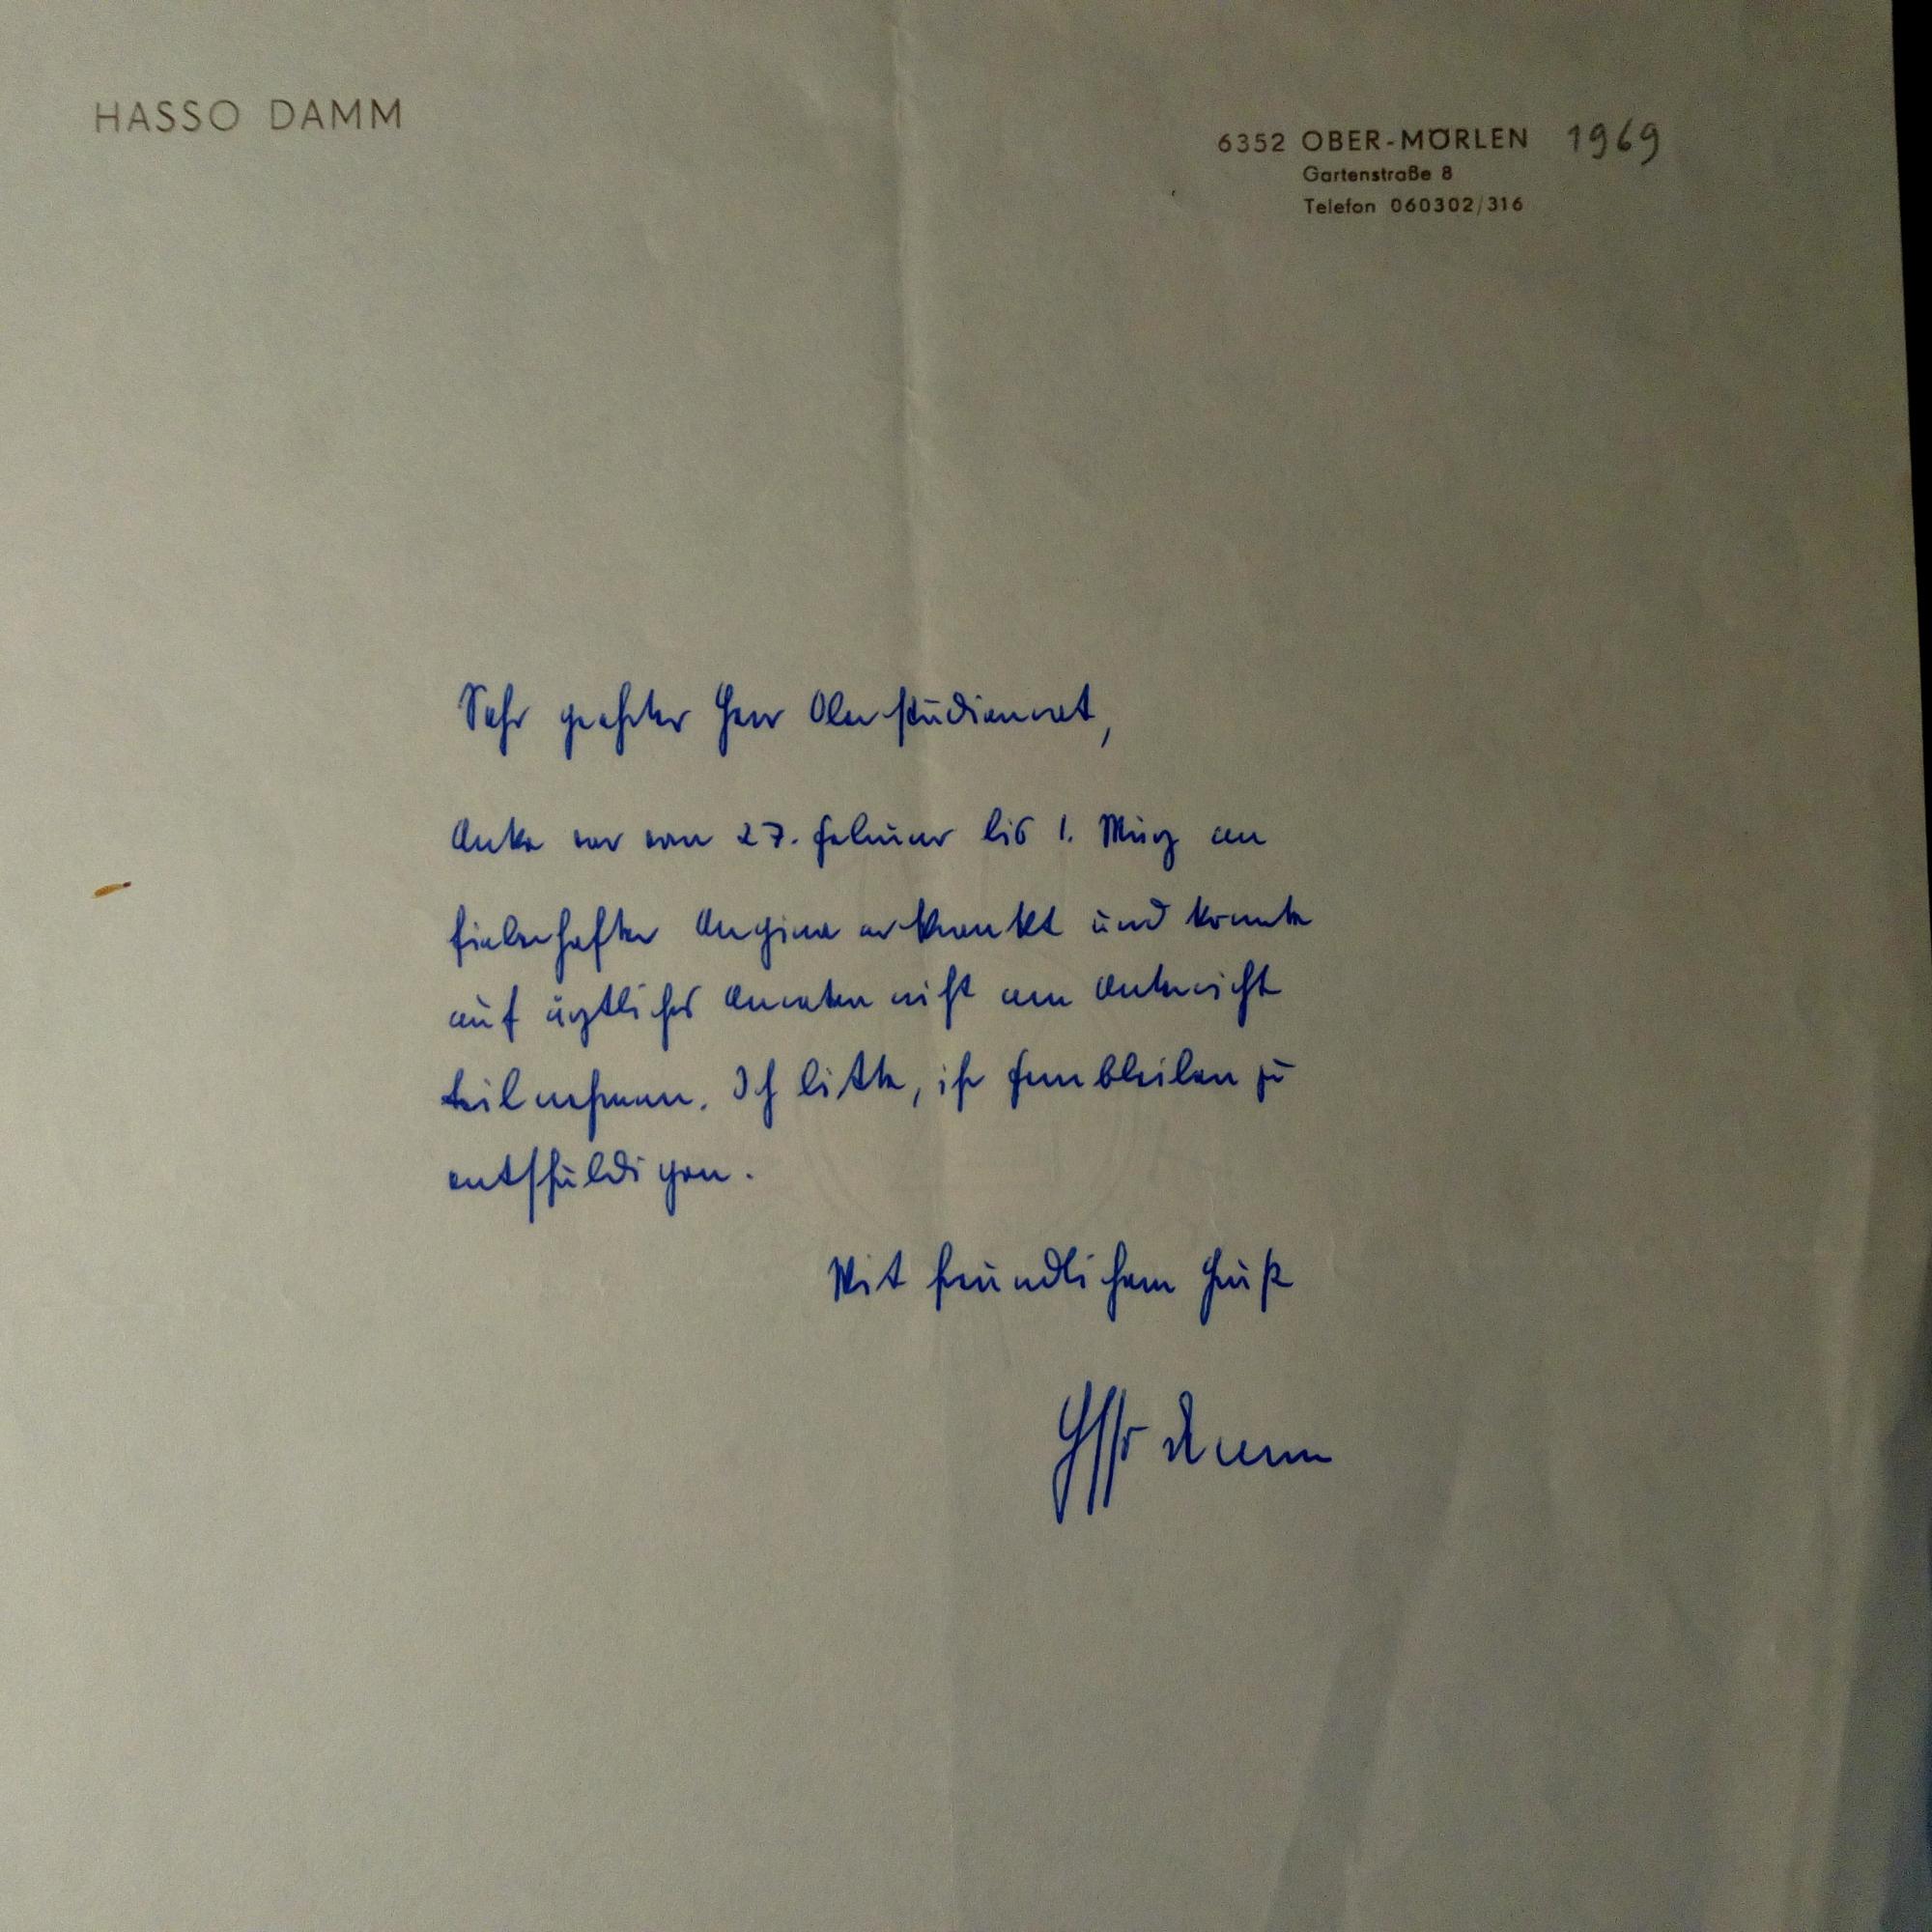 HASSO DAMM
6352 OBER-MÖRLEN 1969
Gartenstraße 8
Telefon 060302/316
Sehr geehrter Herr Oberstudienrat,
Anke war vom 27. Februar bis 1. März an
fieberhafter Angina erkrankt und konnte
auf ärztliches Anraten nicht am Unterricht
teilnehmen. Ich bitte, ihr Fernbleiben zu
entschuldigen.
Mit freundlichem Gruß
Hasso Damm